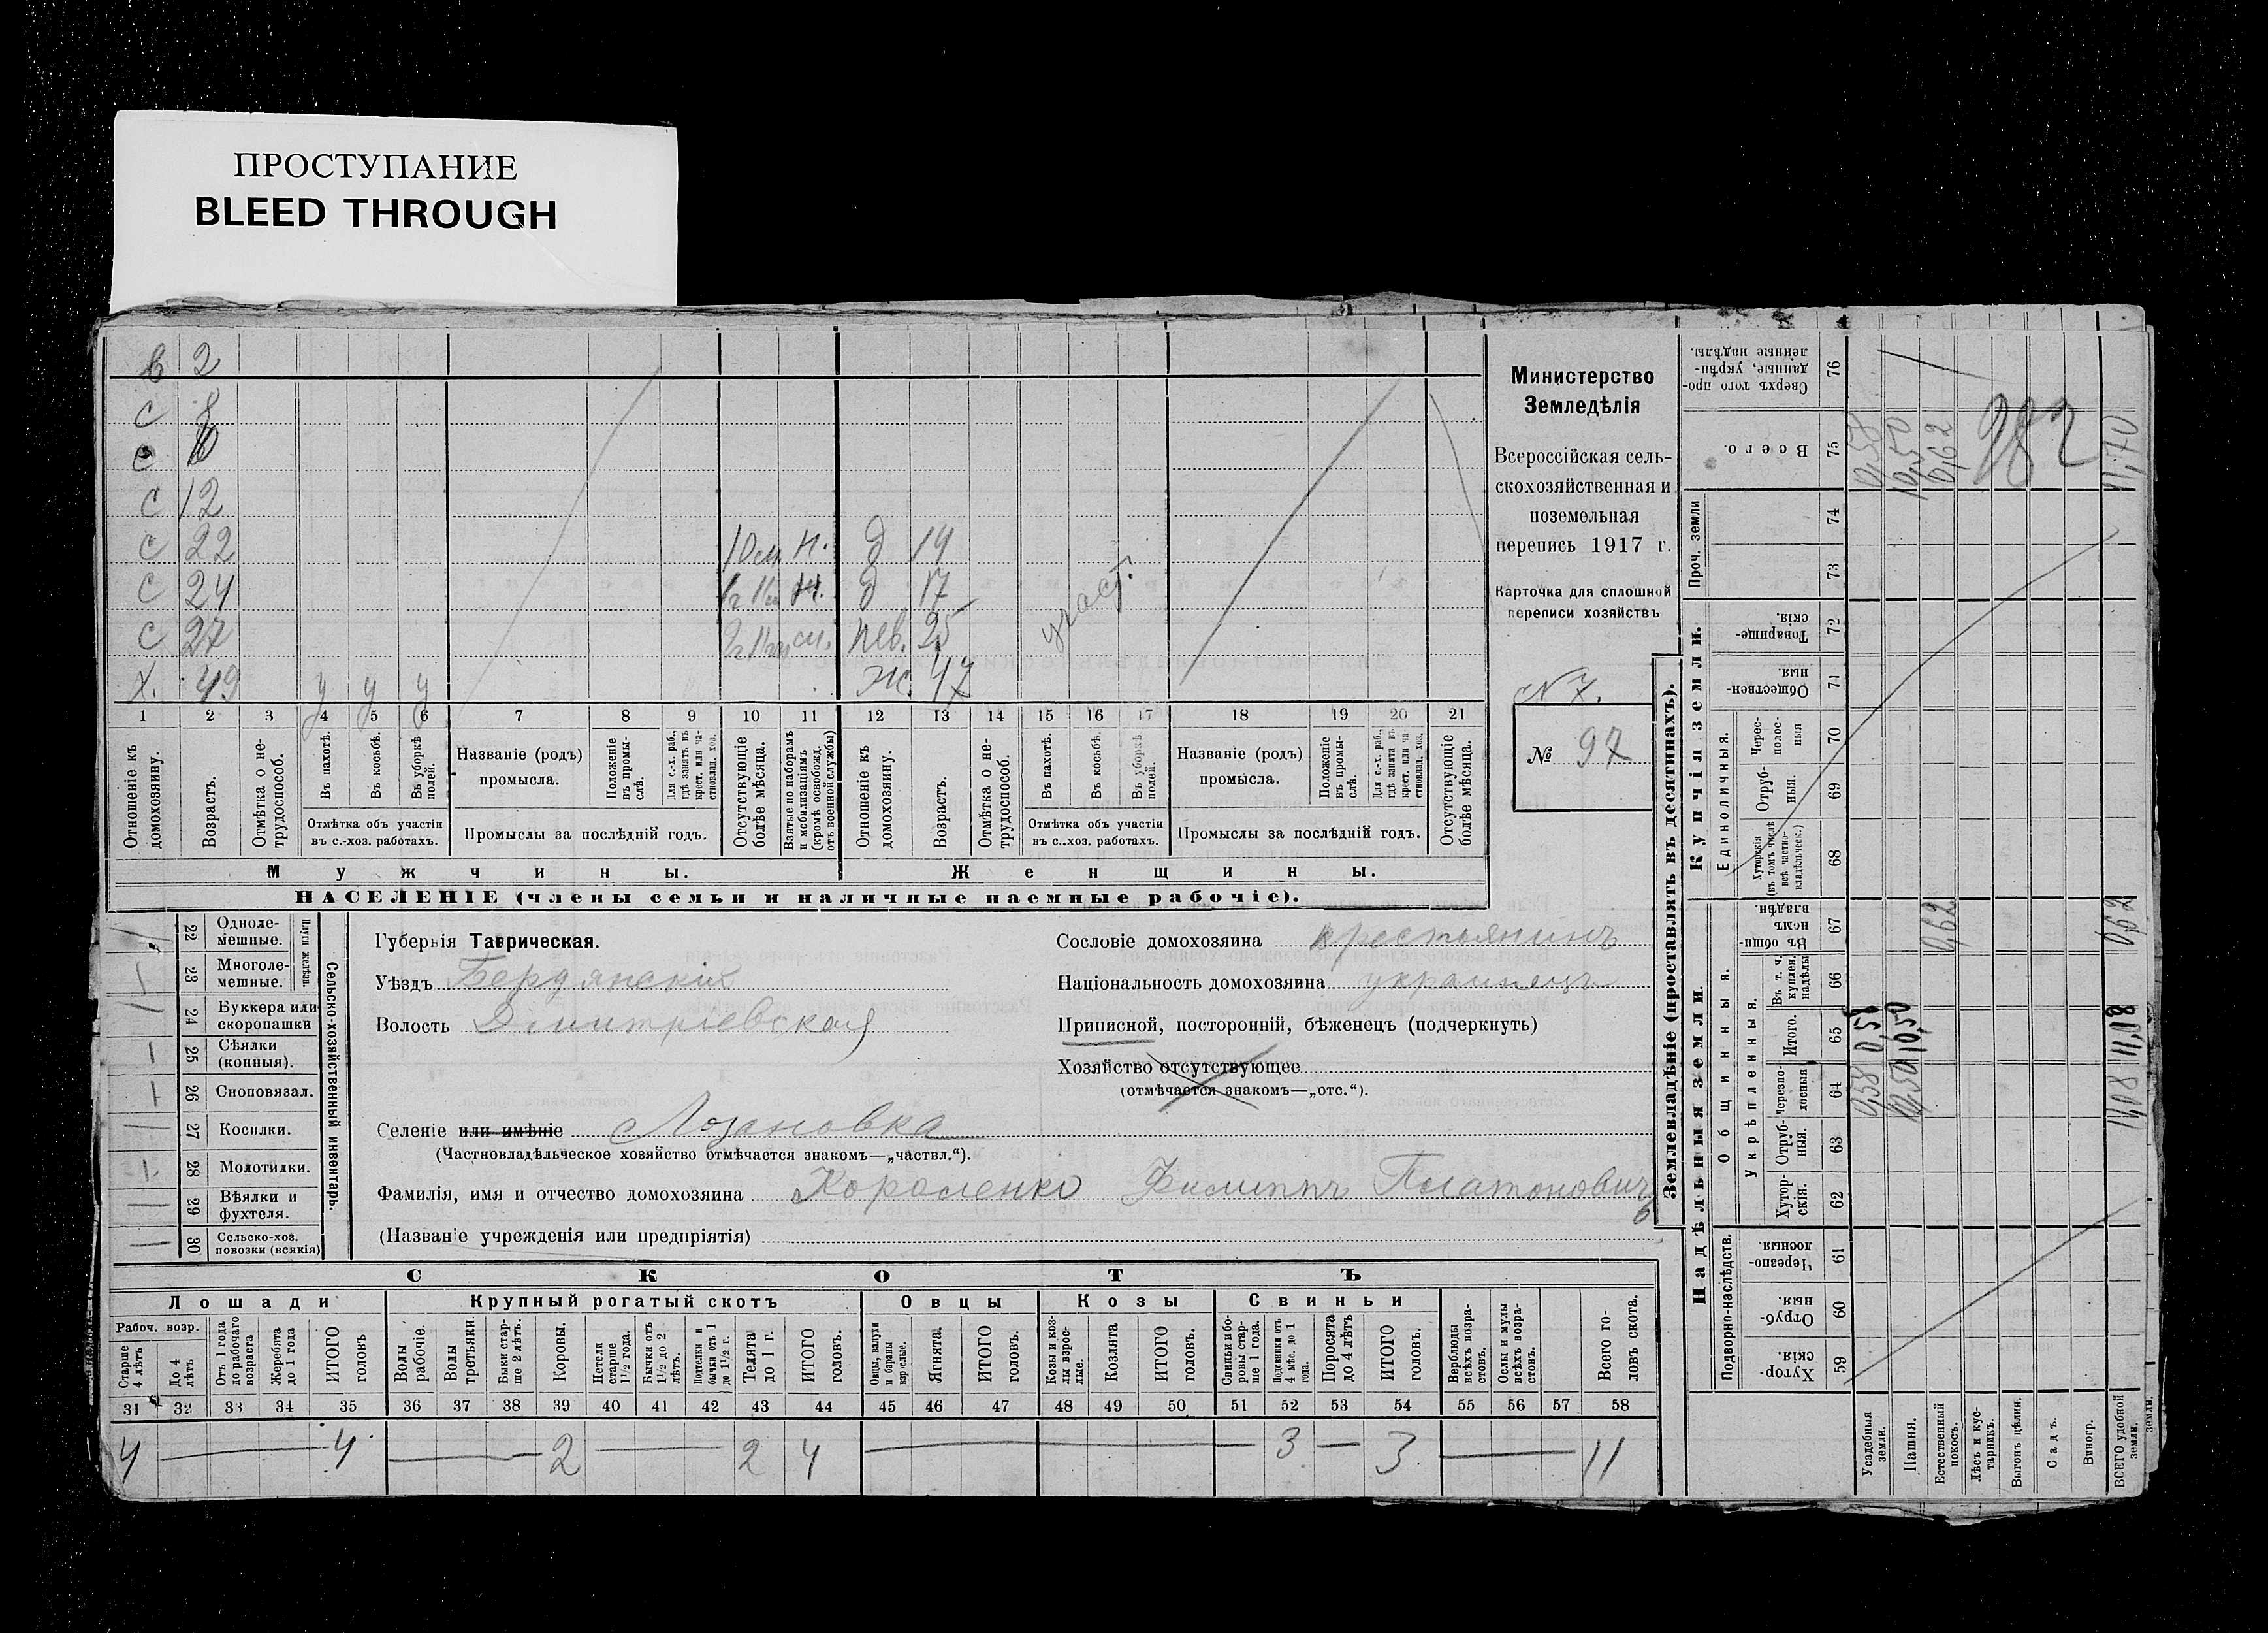 ПРОСТУПАНИЕ
BLEED THROUGH
в 2
с 8
с 10
с 12
с 22 д 19
с 24 д 17
с 27 нев. 25
х. 49 у у у ж. 47
участ.
1 2 3 4 5 6 7 8 9 10 11 12 13 14 15 16 17 18 19 20 21
Отношеніе къ домохозяину.
Возрастъ.
Отмѣтка о не-трудоспособ.
Въ пахотѣ.
Въ косьбѣ.
Въ уборкѣ полей.
Отмѣтка объ участіи
въ с.-хоз. работахъ.
Названіе (родъ)
промысла.
Положеніе въ промы-слѣ.
Для с.-х. раб., гдѣ занятъ въ крест. или ча-стновлад. хоз.
Промыслы за послѣдній годъ.
Отсутствующіе болѣе мѣсяца.
Взятые по наборамъ и мобилизаціямъ (кромѣ освобожд. отъ военной службы)
Отношеніе къ домохозяину.
Возрастъ.
Отмѣтка о не-трудоспособ.
Въ пахотѣ.
Въ косьбѣ.
Въ уборкѣ полей.
Отмѣтка объ участіи
въ с..хоз. работахъ.
Названіе (родъ)
промысла.
Положеніе въ промы-слѣ.
Для с.-х. раб., гдѣ занята въ крест. или ча-стновлад. хоз.
Промыслы за послѣдній годъ.
Отсутствующіе болѣе мѣсяца.
Мужчины.
Женщины.
НАСЕЛЕНІЕ (члены семьи и наличные наемные рабочіе).
Министерство
Земледѣлія
Всероссійская сель-
скохозяйственная и
поземельная
перепись 1917 г.
Карточка для сплошной
переписи хозяйствъ
№ 7.
№ 97
22 Одноле-мешные.
23 Многоле-мешные.
Плуги желѣзн.
24 Буккера или скоропашки
25 Сѣялки (конныя).
26 Сноповязал.
27 Косилки.
28 Молотилки.
29 Вѣялки и фухтеля.
30 Сельско-хоз. повозки (всякія)
Сельско-хозяйственный инвентарь.
Губернія Таврическая.
Уѣздъ Бердянскій
Волость Дмитріевская
Селеніе или имѣніе Лозановка
(Частновладѣльческое хозяйство отмѣчается знакомъ—„частвл.“).
Фамилія, имя и отчество домохозяина Короленко Филиппъ Платоновичъ
6
(Названіе учрежденія или предпріятія)
Сословіе домохозяина крестьянинъ
Національность домохозяина украинецъ
Приписной, посторонній, бѣженецъ (подчеркнуть)
Хозяйство отсутствующее
(отмѣчается знакомъ—„отс.“).
СКОТЪ
Лошади
Крупный рогатый скотъ
Овцы
Козы
Свиньи
Рабоч. возр.
Старше 4 лѣтъ
До 4 лѣтъ
Отъ 1 года до рабочаго возраста
Жеребята до 1 года
ИТОГО головъ
Волы рабочіе.
Волы третьяки.
Быки стар-ше 2 лѣтъ.
Коровы.
Нетели старше 1½ года.
Бычки отъ 1½ до 2 лѣтъ.
Подтелки и бычки отъ 1 до 1½ г.
Телята до 1 г.
ИТОГО головъ.
Овцы, валухи и бараны взрослые.
Ягнята.
ИТОГО головъ.
Козы и коз-лы взрос-лые.
Козлята
ИТОГО головъ.
Свиньи и бо-ровы стар-ше 1 года.
Подсвинки отъ 4 мѣс. до 1 года.
Поросята до 4 лѣтъ
ИТОГО головъ.
Верблюды всѣхъ возра-стовъ.
Ослы и мулы всѣхъ возра-стовъ.
Всего го-ловъ скота.
31 32 33 34 35 36 37 38 39 40 41 42 43 44 45 46 47 48 49 50 51 52 53 54 55 56 57 58
4 4 2 2 4 3 3 11
Землевладѣніе (проставлять въ десятинахъ).
Надѣльныя земли.
Купчія земли.
Проч. земли
Подворно-наслѣдств.
Общинныя.
Укрѣпленныя.
Единоличныя.
Сверхъ того про-данные, укрѣп-ленные надѣлы. 76
Всего. 75 0,58 10,50 0,62 11,70
982
74
73
Товарище-скія. 72
Обществен-ныя. 71
Черес-полос-ныя 70
Отруб-ныя. 69
Хуторскія (въ томъ числѣ всѣ частно-владѣльческ.) 68
Въ общин-номъ владѣн. 67 0,62 0,62
Въ т. ч. куплен. надѣлы 66
Итого. 65 0,58 10,50 11,08
черезпо-лосныя 64 0,58 10,50 11,08
Отруб-ныя. 63
Хутор-скія. 62
Черезпо-лосныя. 61
Отруб-ныя. 60
Хутор-скія. 59
Усадебныя земли.
Пашня.
Естественный покосъ.
Лѣсъ и кус-тарникъ.
Выгонъ цѣлин.
Садъ.
Виногр.
ВСЕГО удобной земли.
земли.